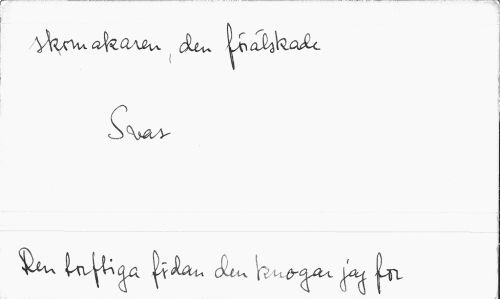 skomakaren, den förälskade
Svar
Den torftiga fidan den knogar jag för